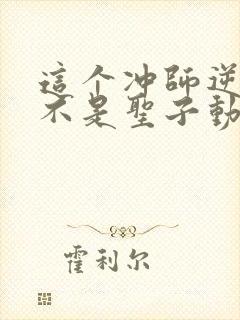 這个冲師逆
不是聖子動
霍利尔